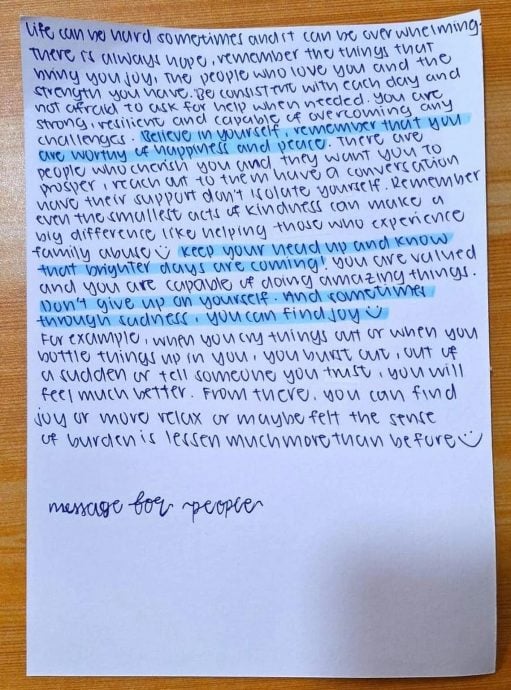 life can be hard sometimes and it can be over whelming.
There is always hope, remember the things that
bring you joy, the people who love you and the
strength you have. Be consistent with each day and
not afraid to ask for help when needed. you are
strong, resilient and capable of overcoming any
challenges. Believe in yourself, remember that you
are worthy of happiness and peace. There are
people who cherish you and they want you to
prosper, reach out to them have a conversation
have their support don't isolate yourself. Remember
even the smallest acts of kindness can make a
big difference like helping those who experience
family abuse. Keep your head up and know
that brighter days are coming! you are valued
and you are capable of doing amazing things.
Don't give up on yourself. And sometimes
through sadness, you can find joy
For example, when you cry things out or when you
bottle things up in you, you burst out, out of
a sudden or tell someone you trust, you will
feel much better. From there, you can find
joy or more relax or maybe felt the sense
of burden is lessen much more than before
message for people